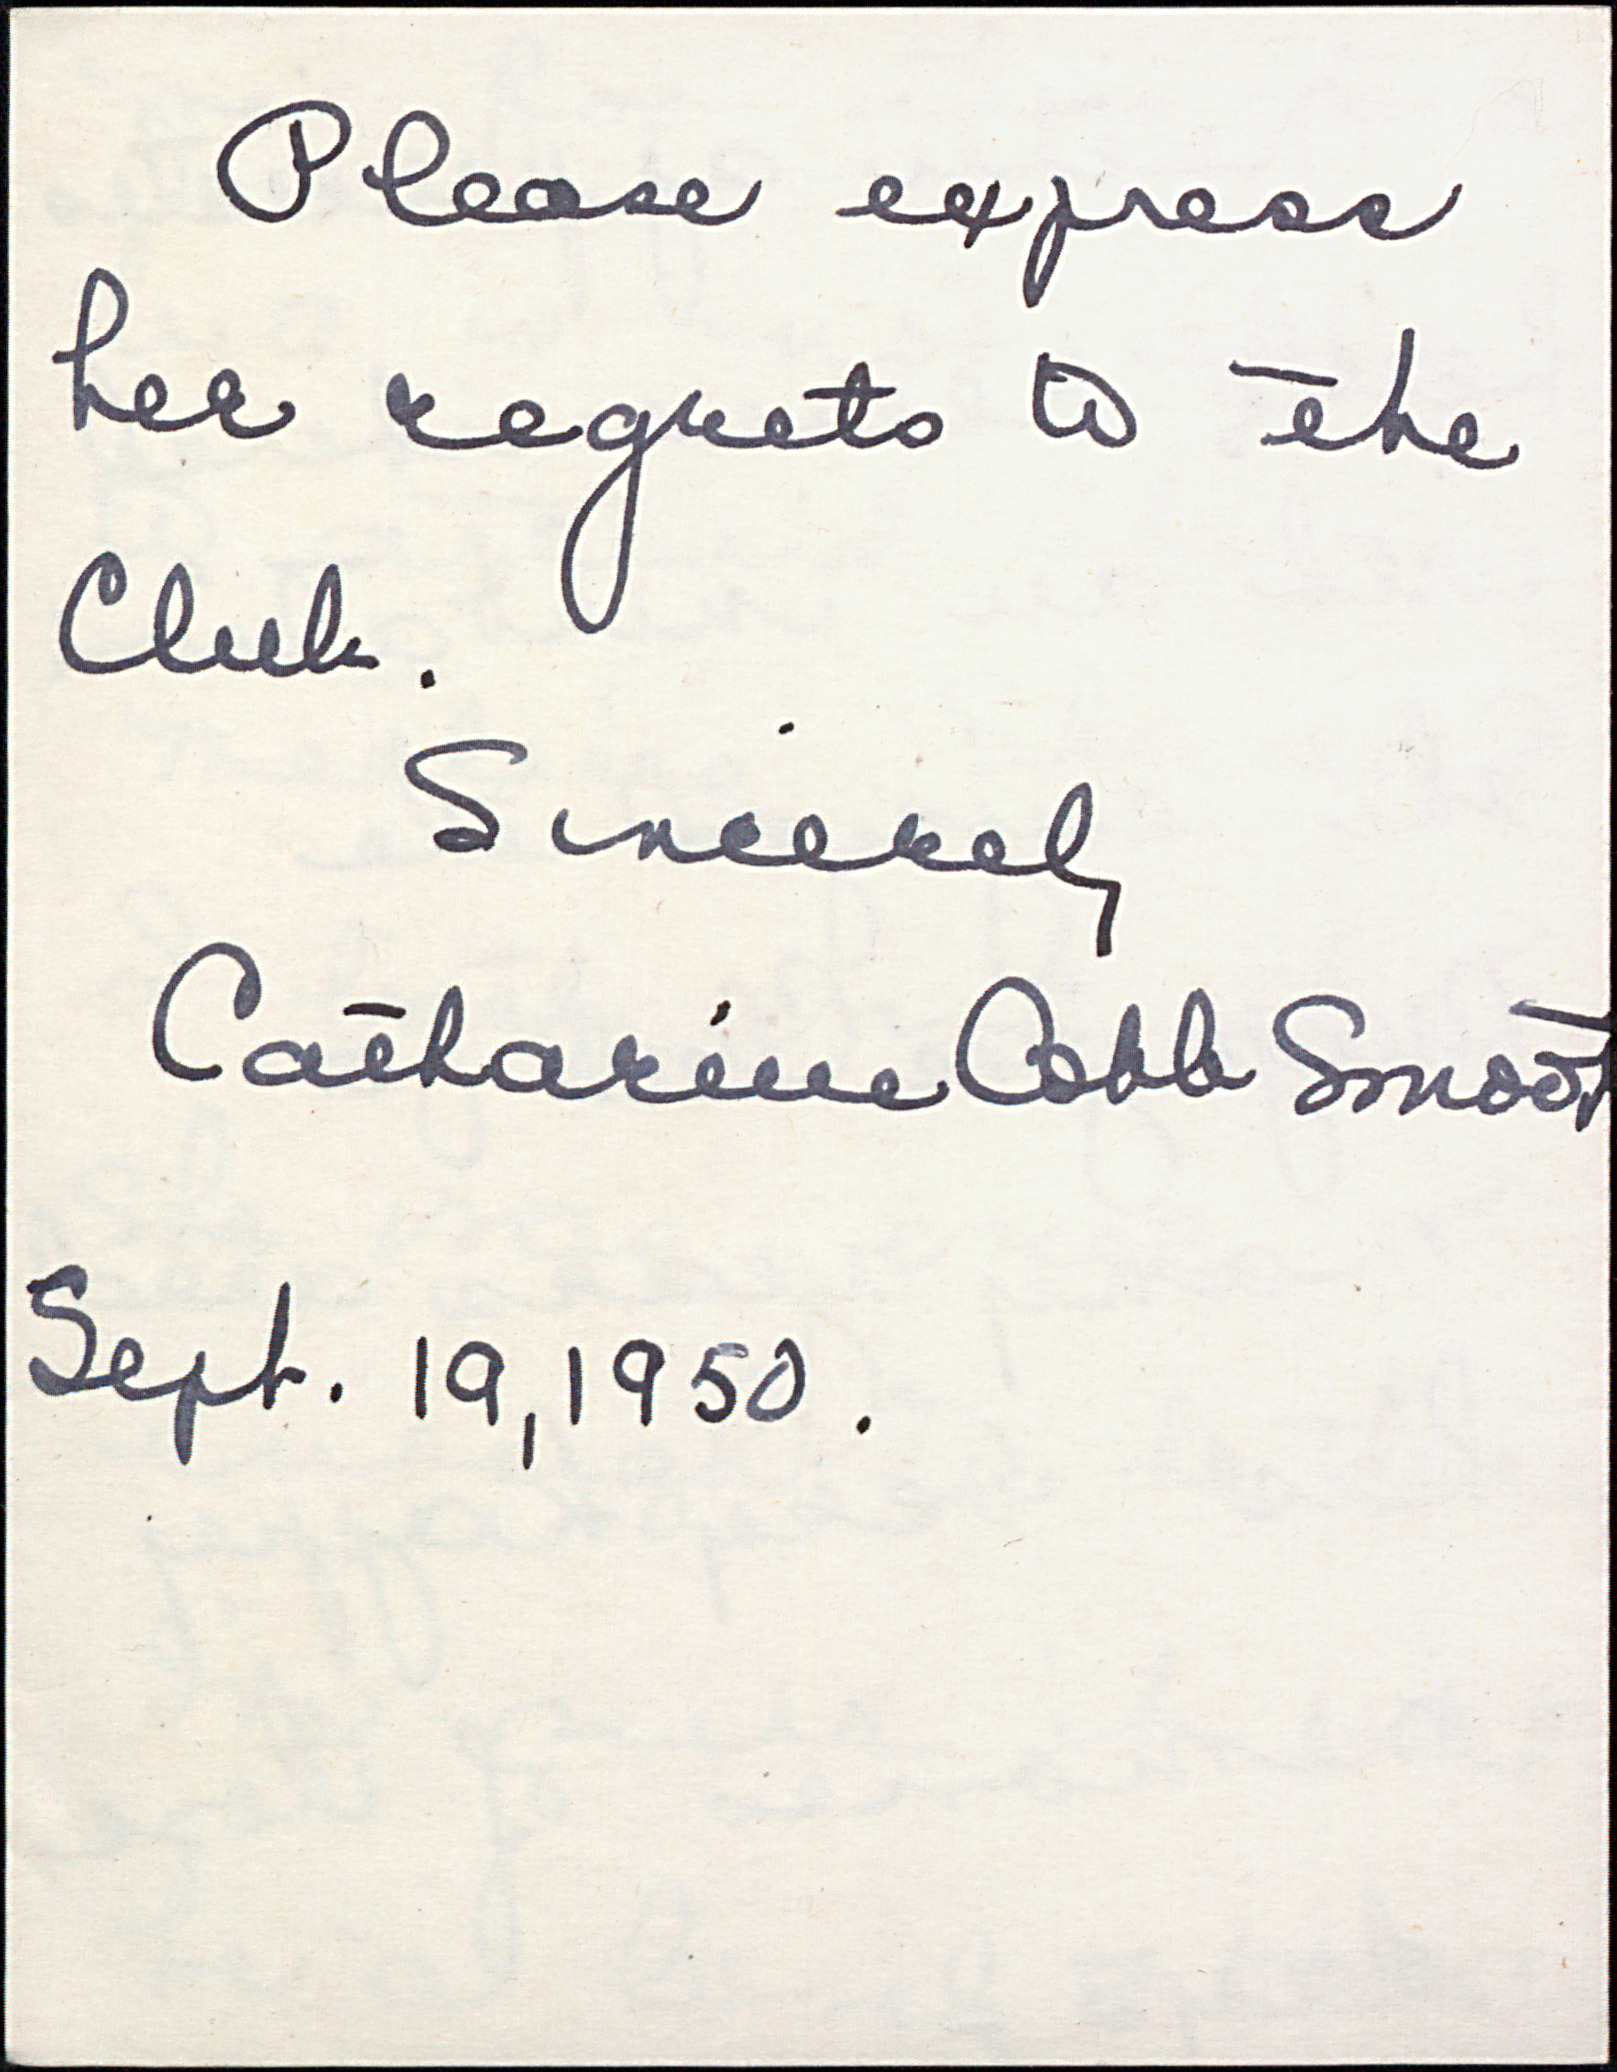 Please express
her regrets to the
Club.
Sincerely
Catharine Cobb Smoot
Sept. 19, 1950.